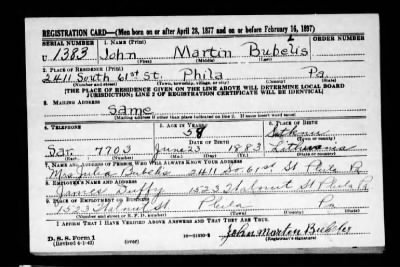 REGISTRATION CARD—(Men born on or after April 28, 1877 and on or before February 16, 1897)
SERIAL NUMBER 1. NAME (Print) ORDER NUMBER
U 1383 John Martin Bubelis
(First) (Middle) (Last)
2. PLACE OF RESIDENCE (Print)
2411 South 61st St. Phila Pa.
(Number and street) (Town, township, village, or city) (County) (State)
[THE PLACE OF RESIDENCE GIVEN ON THE LINE ABOVE WILL DETERMINE LOCAL BOARD
JURISDICTION; LINE 2 OF REGISTRATION CERTIFICATE WILL BE IDENTICAL]
3. MAILING ADDRESS
Same
[Mailing address if other than place indicated on line 2. If same insert word same]
4. TELEPHONE 5. AGE IN YEARS 6. PLACE OF BIRTH
58
DATE OF BIRTH
Sar 7703 June 23 1883 Lithuania
(Exchange) (Number) (Mo.) (Day) (Yr.) (State or country)
7. NAME AND ADDRESS OF PERSON WHO WILL ALWAYS KNOW YOUR ADDRESS
Mrs Julia 2411 So. 61st St Phila Pa
8. EMPLOYER'S NAME AND ADDRESS
James Duffy 1523 Walnut St Phila Pa
9. PLACE OF EMPLOYMENT OR BUSINESS
1523 Walnut St Phila Pa
(Number and street or R. F. D. number) (Town) (County) (State)
I AFFIRM THAT I HAVE VERIFIED ABOVE ANSWERS AND THAT THEY ARE TRUE.
D. S. S. Form 1
(Revised 4-1-42) (over) John Martin Bubelis
(Registrant's signature)